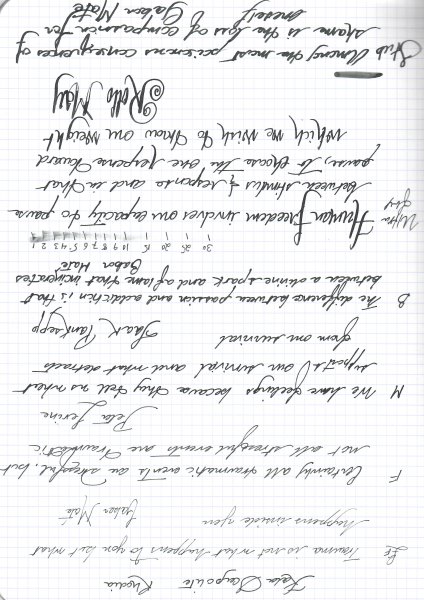 Rhodia
EF Trauma is not what happens to you but what
happens inside you Gabor Maté
F Certainly all traumatic events are stressful, but
not all stressful events are traumatic
Peter Levine
M We have feelings because they tell us what
supports our survival and what detracts
from our survival
Jaak Panksepp
B The difference between passion and addiction is that
between a divine spark and a flame that incinerates
Gabor Mate
1 2 3 4 5 6 7 8 9 10 15 20 25 30
Human freedom involves our capacity to pause
between stimulus & response and in that
pause, to choose the one response toward
which we wish to throw our weight
Rollo May
Stub Among the most poisonous consequences of
shame is the loss of compassion for
oneself Gabor Maté